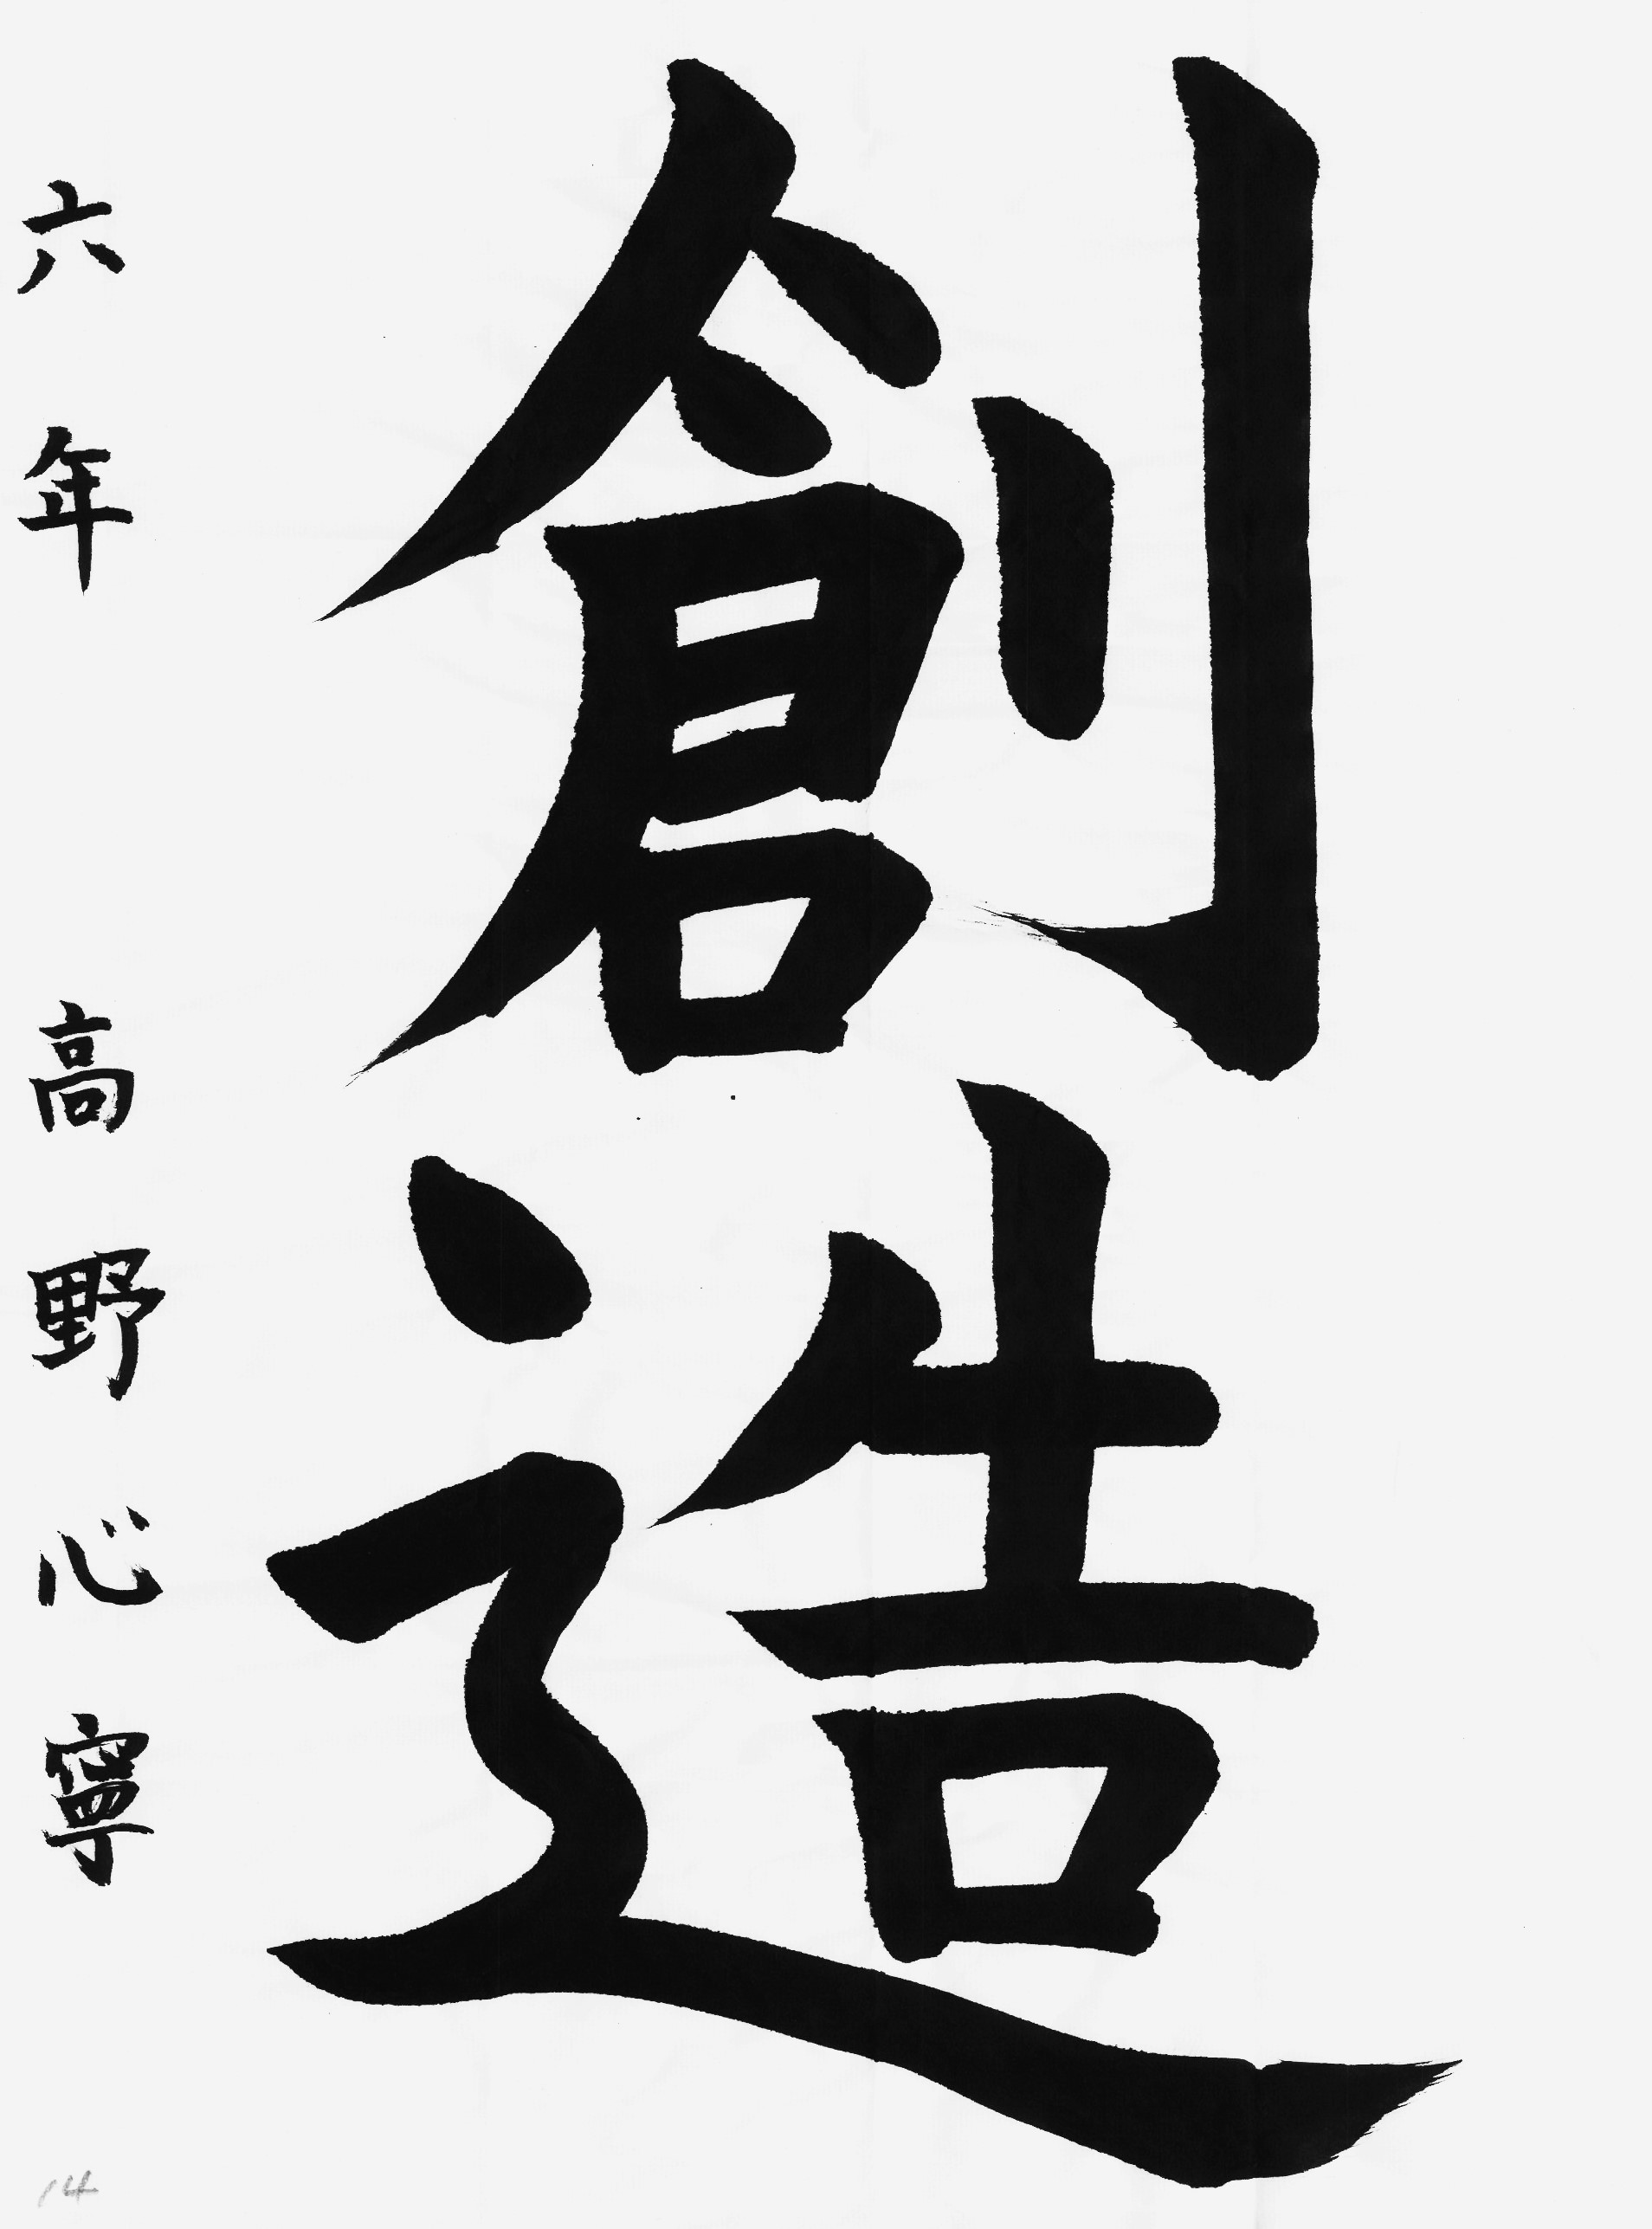 創造
六年 高野心寧
14